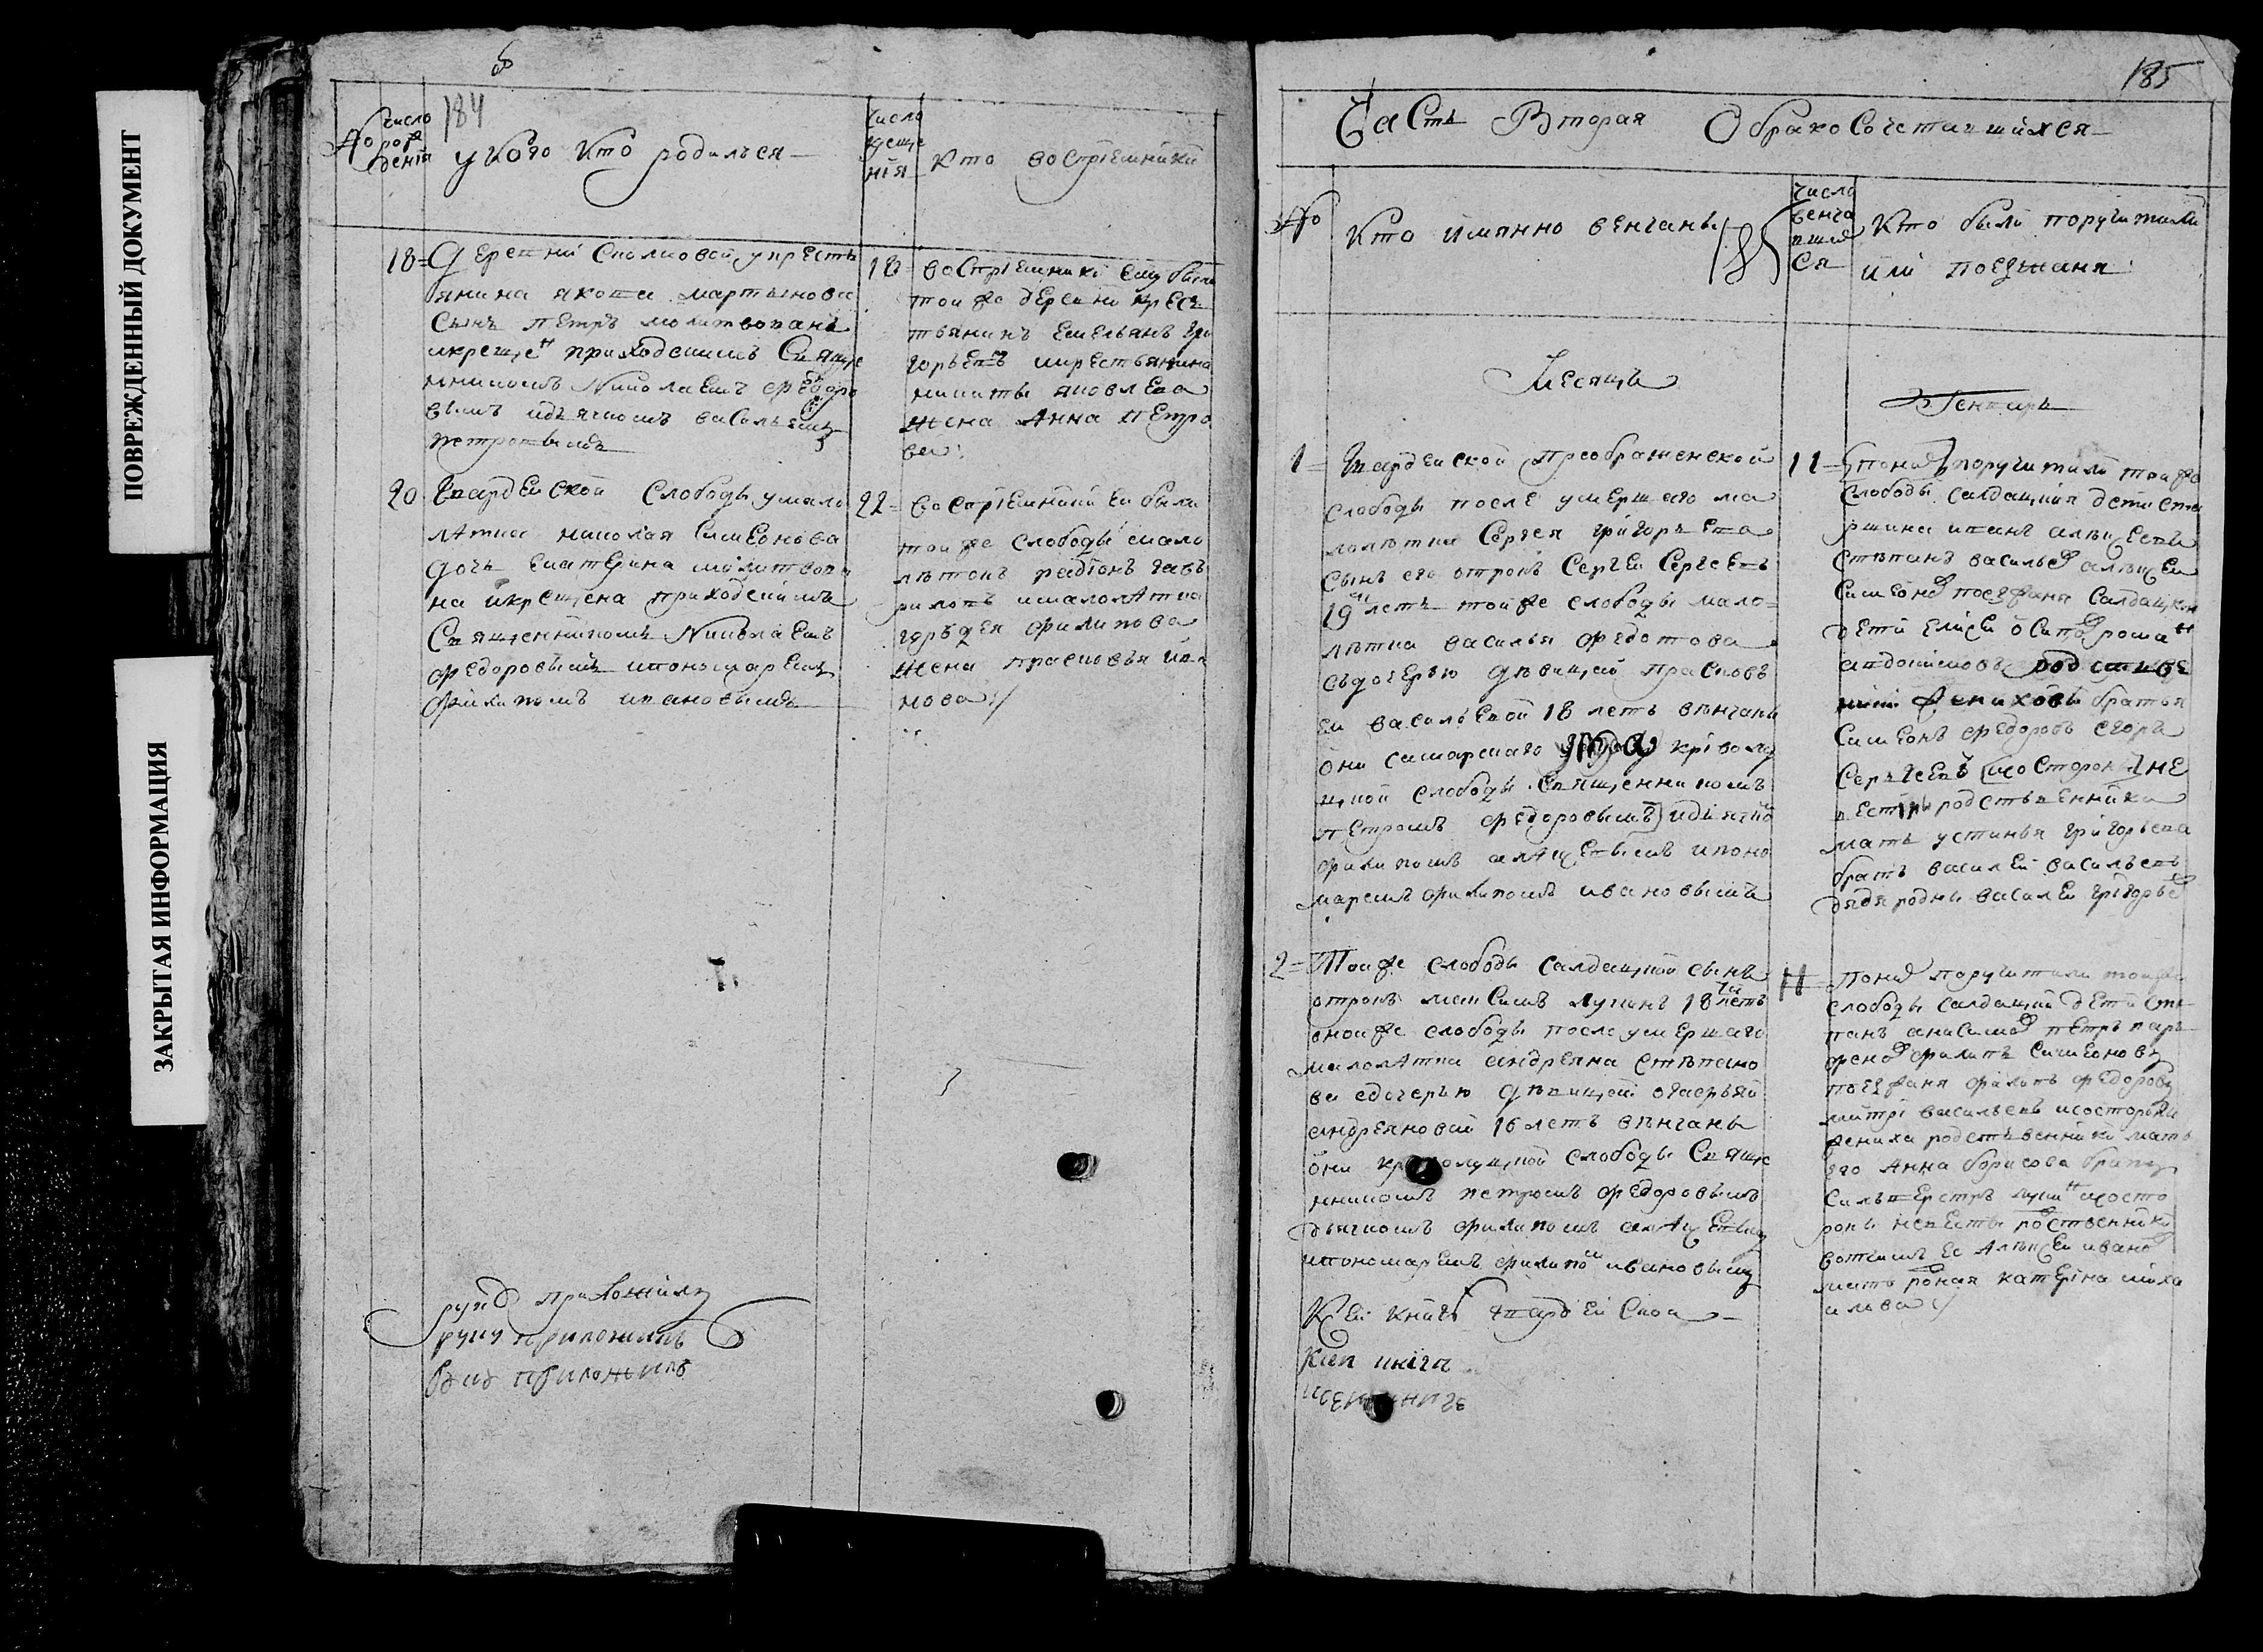 ПОВРЕЖДЕННЫЙ ДОКУМЕНТ
ЗАКРЫТАЯ ИНФОРМАЦИЯ
184
число рождения
у кого кто родился
число крещения
кто восприемники
18 деревни у кресть
янина якова мартынова
сынъ петръ молитвованъ
икрещенъ приходскимъ свяще
нникомъ николаемъ федоро
вымъ идьячкомъ васильемъ
петровымъ
18 восприемники ему были
тои же деревни крес
тьянинъ емельянъ гри
горьевъ икрестьянина
никиты яковлева
жена анна петро
ва
20 гвардейской слободы умало
лѣтка николая симеонова
дочь екатерина молитвова
на икрещена приходскимъ
священникомъ николаемъ
федоровымъ ипономаремъ
филипомъ ивановымъ
22 восприемники ей были
тои же слободы мало
лѣтокъ радионъ гав
риловъ ималолѣтка
филипова
жена прасковья ива
нова
руку приложилъ
руку приложилъ
руку приложилъ
185
Часть Вторая О бракосочетавшихся
№
кто имянно венчаны
185
число венчавшихся
кто были поручители
или поезжаня
Месяцъ
Генварь
1 гвардейской преображенской
слободы после умершаго ма
лолѣтка сергея григорьева
сынъ его отрокъ сергеи сергеевъ
19 летъ тои же слободы мало
лѣтка василья федотова
съдочерью дѣвицей прасковь
ей васильевой 18 летъ вѣнчаны
они самарскаго криволу
цкой слободы священникомъ
петромъ федоровымъ идьячко
филипомъ алѣксѣевымъ ипоно
маремъ филипомъ ивановымъ
11 поних поручители тои же
слободы салдацкия дети ста
ршина иванъ алѣксеевъ
стѣпанъ васильев алѣксеи
симеонов поезжаня салдацкия
дети елисеи осипов романъ
евдокимовъ родстве
нники жениховы братья
симеонъ федоровъ егоръ
сергеевъ исо стороны не
весты родственники
мать устинья григорьева
братъ василеи васильевъ
дядя родны василеи григорьев
2 тои же слободы салдацкой сынъ
отрокъ максимъ лукинъ 18 летъ
оноиже слободы после умершаго
малолѣтка андреяна стѣпано
ва сдочерью дѣвицей
андреяновой 16 летъ вѣнчаны
они криволуцкой слободы свяще
нникомъ петромъ федоровымъ
дьячкомъ филипомъ алѣксѣевымъ
ипономаремъ филипом ивановымъ
11 поних поручители тоиже
слободы салдацкии дети сте
панъ анисимов петръ пар
фенов филипъ симеоновъ
поезжаня филипъ федоровъ
митри васильевъ исостороны
жениха родственники мать
его анна борисова братъ
сильверстръ лукинъ исосто
роны невесты родственники
вотчимъ ее алѣксеи иванов
мать родная катерина миха
илова
Ксеи книге гвардейской
Ксеи книге